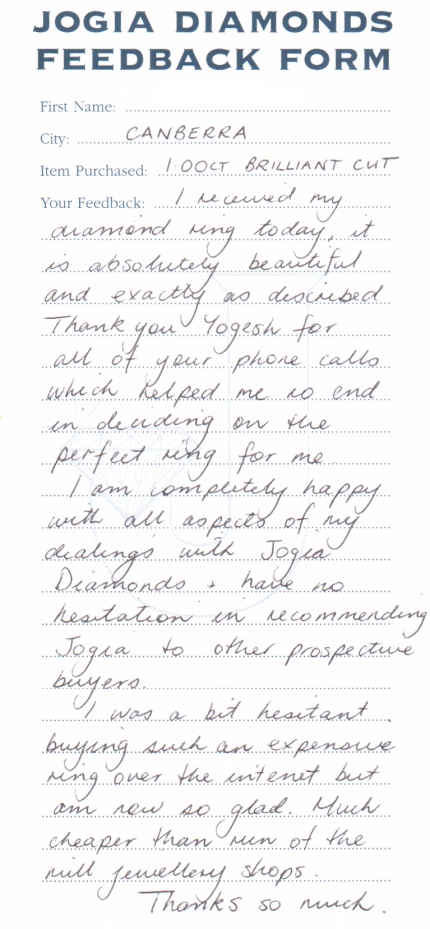 JOGIA DIAMONDS
FEEDBACK FORM
First Name:
City: CANBERRA
Item Purchased: 1.00CT BRILLIANT CUT
Your Feedback: I received my
diamond ring today, it
is absolutely beautiful
and exactly as described
Thank you Yogesh for
all of your phone calls
which helped me no end
in deciding on the
perfect ring for me
I am completely happy
with all aspects of my
dealings with Jogia
Diamonds + have no
hesitation in recommending
Jogia to other prospective
buyers.
I was a bit hesitant
buying such an expensive
ring over the internet but
am now so glad. Much
cheaper than run of the
mill jewellery shops.
Thanks so much.